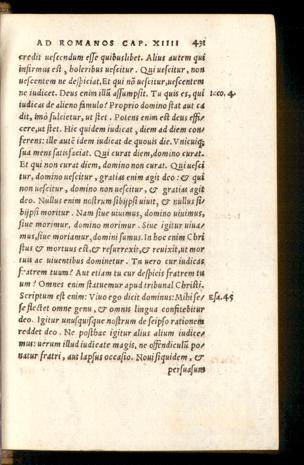 AD ROMANOS CAP. XIIII 431
credit uescendum esse quibuslibet. Alius autem qui
infirmus est, holeribus uescitur. Qui uescitur, non
uescentem ne despiciat. Et qui nō uescitur, uescentem
ne iudicet. Deus enim illū assumpsit. Tu quis es, qui Iaco. 4.
iudicas de alieno famulo? Proprio domino stat aut ca
dit, imò fulcietur, ut stet. Potens enim est deus effi/
cere, ut stet. Hic quidem iudicat, diem ad diem con
ferens: ille autē idem iudicat de quouis die. Vnicuiq;
sua mens satisfaciat. Qui curat diem, domino curat.
Et qui non curat diem, domino non curat. Qui uesci
tur, domino uescitur, gratias enim agit deo: & qui
non uescitur, domino non uescitur, & gratias agit
deo. Nullus enim nostrum sibijpsi uiuit, & nullus si/
bijpsi moritur. Nam siue uiuimus, domino uiuimus,
siue morimur, domino morimur. Siue igitur uiua/
mus, siue moriamur, domini sumus. In hoc enim Chri
stus & mortuus est & resurrexit, & reuixit, ut mor
tuis ac uiuentibus dominetur. Tu uero cur iudicas
fratrem tuum? Aut etiam tu cur despicis fratrem tu
um? Omnes enim statuemur apud tribunal Christi.
Scriptum est enim: Viuo ego dicit dominus: Mihi se/ Esa. 45
se flectet omne genu, & omnis lingua confitebitur
deo. Igitur unusquisque nostrum de seipso rationem
reddet deo. Ne posthac igitur alius alium iudice/
mus: uerum illud iudicate magis, ne offendiculū po/
natur fratri, aut lapsus occasio. Noui siquidem, &
persuasum